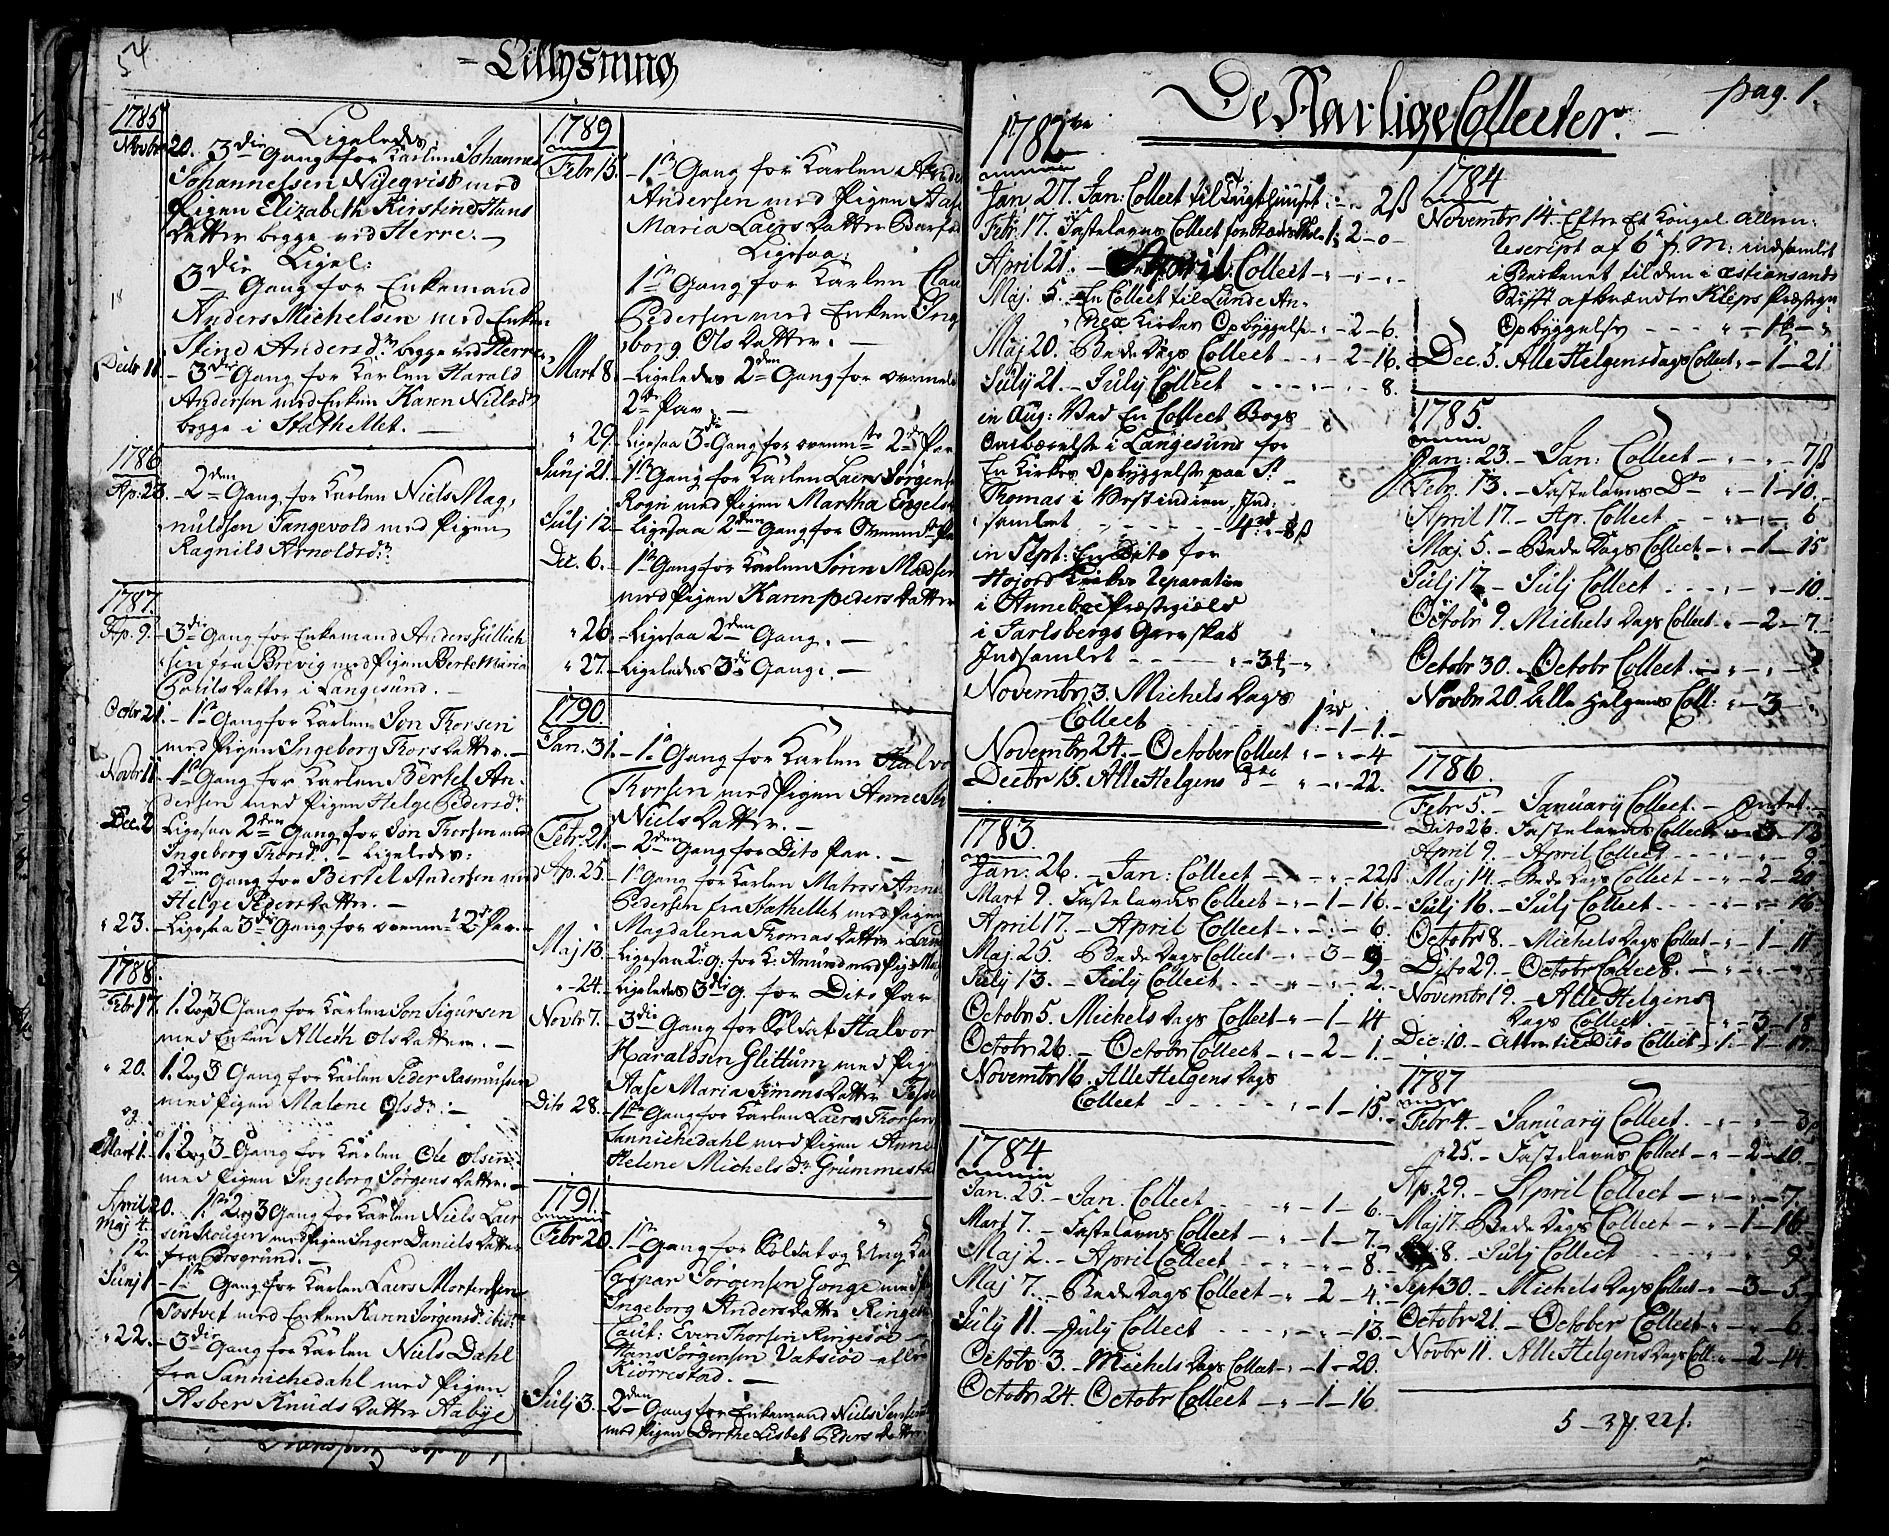 54.
Tillysning
1785
Novbr 20. 3die Ligeledes
Gang for Karlen Johannes
Johannessen Nyeqvist med
Pigen Elizabeth Kirstine Hans
Datter begge ved Herre. –
3die Ligel:
Gang for Enkemand
Anders Michelsen med Enken
Stine Andersdr begge ved Herre
Decbr 11. – 3die Gang for Karlen Harald
Andersen med Enken Karen Nielsdr
begge i Stathellet. –
1786
Ap. 23. – 2den Gang for Karlen Niels Mag,
nuldsen Tangevold med Pigen
Ragnils Arnoldsdr
1787.
Ap. 9. – 3die Gang for Enkemand Anders Gullich
sen fra Brevig med Pigen Berte Maria
Datter i Langesund. –
Octbr 21. – 1te Gang for Karlen Jon Thorsen
med Pigen Ingeborg Thors Datter. –
Novbr 11 – 1ste Gang for Karlen Bertel An,
dersen med Pigen Helge Pedersdr
Dec. 2 Ligesaa 2den Gang for Jon Thorsen med
Ingeborg Thorsdr. – Ligeledes:
2den Gang for Bertel Andersen med
Helge Peders Datter. –
" 23. – Ligesaa 3die Gang for ovenmte 2de Par. –
1788
Febr 17. 1. 2 og 3 Gang for Karlen Jon Sigursen
med Enken Allesh Ols Datter. –
" 20. 1. 2 og 3 Gang for Karlen Peder Rasmussen
med Pigen Malene Olsdr. –
og
Mart 1. 1. 2 og 3 Gang for Karlen Ole Olsen
med Pigen Ingeborg Jørgens Datter. –
April 20. 1ste 2 og 3 Gang for Karlen Niels Laer
Maj 4. sen Skougen med Pigen Inger Daniels Datter
" 12. fra Porsgrund. –
Junj 1 – 1te Gang for Karlen Laers Mortensen
Tostvet med Enken Karen Jørgensdr ibidm
" 22. – 3die Gang for Karlen Niels Dahl
fra Sannichedahl med Pigen
Asber Knuds Datter Aabye
Transport
1789
Febr 15. – 1ste Gang for Karlen Ande
Andersen med Pigen Aase
Maria Laers Datter
Ligesaa:
1ste Gang for Karlen Clau
Pedersen med Enken Inge
borg Ols Datter. –
Mart 8. – Ligeledes 2den Gang for ovenmelte
2de Par. –
" 29. Ligesaa 3die Gang for ovenmte 2de Par
Junj 21. 1ste Gang for Karlen Laers Jørgens
Rogn med Pigen Martha Engels
Julj 12 – Ligesaa 2den Gang for Ovenmte
Dec. 6. – 1ste Gang for Karlen Søren Madsen
med Pigen Karen Peders Datter
" 26 – Ligesaa 2den Gang. –
" 27. – Ligeledes 3die Gang. –
1790
Jan. 31. – 1te Gang for Karlen Halvo
Torsen med Pigen Anne
Niels Datter. –
Febr. 21. – 2den Gang for Dito Par. –
Ap. 25. – 1te Gang for Karlen Matros
Pedersen fra Stathellet med Pigen
Magdalena Thomas Datter i
Maj 13. Ligesaa 2: g: for K: Amund med Pig:
" – 24. Ligeledes 3die g. for Dito Par
Novbr 7. – 3die Gang for Soldat Halvor
Haraldsen Glittum med Pige
Aase Maria Simons Datter
Dito 28. – 1ste Gang for Karlen Laers Thorsen
Sannichedahl med Pigen Anne
Helene Michelsdr Grummestad
1791.
Febr 20. 1ste Gang for Soldat og Ung Ka
Caspar Jørgensen Gonge med
Ingeborg Anders Datter
Caut: Even Thorsen
Hans Jørgensen
Kiørrestad. –
Julj 3. 2den Gang for Enkemand Niels Jens
med Pigen Dorthe Lisbet Peders Datter
De Aarlige Collecter. –
pag. 1.
1782
Jan 27. Jan: Collect til Tugthuuset : – " 2ß
Febr. 17. Fastelavns Collect 1: 2 – 0 –
April 21. – April: Collect – " – " –
Maj. 5. – En Collect til Lunde An,
nex Kirkes Opbyggelse – " – 2 – 6.
Maj 20. Bede Dags Collect – " 2 – 16.
July 21. – July Collect 8.
in Aug: Ved En Collect Bogs
Ombærelse i Langesund for
En Kirkes Opbyggelse paa St
Thomas i Vestindien, Ind,
samlet – 4rd – 8ß
in Sept: En Dito for
Kirkes Reparation
i Anneboe Præstegiæld
i Jarlsbergs Grevskab
Indsamlet – " – 3 – "
Novembr 3. Michels Dags
Collect 1rd – 1 – 1. –
Novembr 24. – October Collect – " – 4
Decbr 15. Alle Helgens Dto " – " – 22.
1783.
Jan: 26. – Jan: Collect – " – " 22ß
Mart 9. Fastelavns Collect – " – 1 – 16. –
April 17. – April Collect – " – " – 6.
Maj 25. Bede Dags Collect – " 3 – 9.
July 13. – July Collect – " – 2. –
Octobr 5. Michels Dags Collect – " – 1 – 14
Octobr 26. – Octobr Collect – " – 2 – 1. –
Novembr 16. Alle Helgens Dags
Collect – " – 1 – 15. –
1784
Jan. 25. – Jan. Collect – " – 1 – 6. –
Mart 7. – Fastelavns Collect – " – 1 – 7. –
Maj 2. – April Collect – " – 8. –
Maj 7. – Bede Dags Collect – " – 2 – 4. –
July 11. – July Collect – " – 13. –
Octobr 3. – Michels Dags Collect – " – 1 – 20.
Octobr 24. Octobr Collect – " – 1 – 16.
1784
Novembr 14. Efter Et Kongel Allern:
Rescript af 6te f. M: indsamlet
i Bækenet til den i Christiansands
Stift afbrændte Kleps Præsteg.
Opbyggelse – " – 1 – "
Dec. 5. Alle Helgens Dags Collect " – 1 – 21
1785.
Jan: 23. – Jan: Collect – " – " – 7ß
Febr. 13. – Fastelavns Dto " – 1 – 10. –
April 17. – Ap. Collect – " – 6
Maj. 5. – Bede Dags Collect – " – 1 – 15
Julj 17. – Julj Collect – " – 10. –
Octobr 9. Michels Dags Collect " – 2 – 7. –
Octobr 30. – Octobr Collect. – " – "
Novbr 20. Alle Helgens Coll: " – 3 – "
1786.
Febr 5. – January Collect. –
Dito 26. Fastelavns Collect " – 3 – 12
April 9. – April Collect – " – 9.
Maj 14. – Bede Dags Collect – " – 2 – 20
Julj 16. – Julj Collect. – " – 16.
Octobr 8. – Michels Dags Collect – " – 1 – 11
Dito 29. – Octobr Collect. – " – "
Novembr 19. – Alle Helgens
Dags Collect – " – 3 – 18
Dec: 10. – Dito Collect – 1: – 1 – 17. –
1787
Febr 4. – January Collect. – " – 3ß
" 25. – Fastelavns Collect – " – 2 – 10. –
Ap. 29. – April Collect – " – 7. –
Maj 17. Bede Dags Collect – " – 1 – 16
8. – Julj Collect – " – 9
Sept 30. – Michels Dags Collect – " – 3 – 5.
Octobr 21. – October Collect – " – 6. –
Novbr 11. Alle Helgens Dags Coll: " – 2 – 14
5 – 3 22